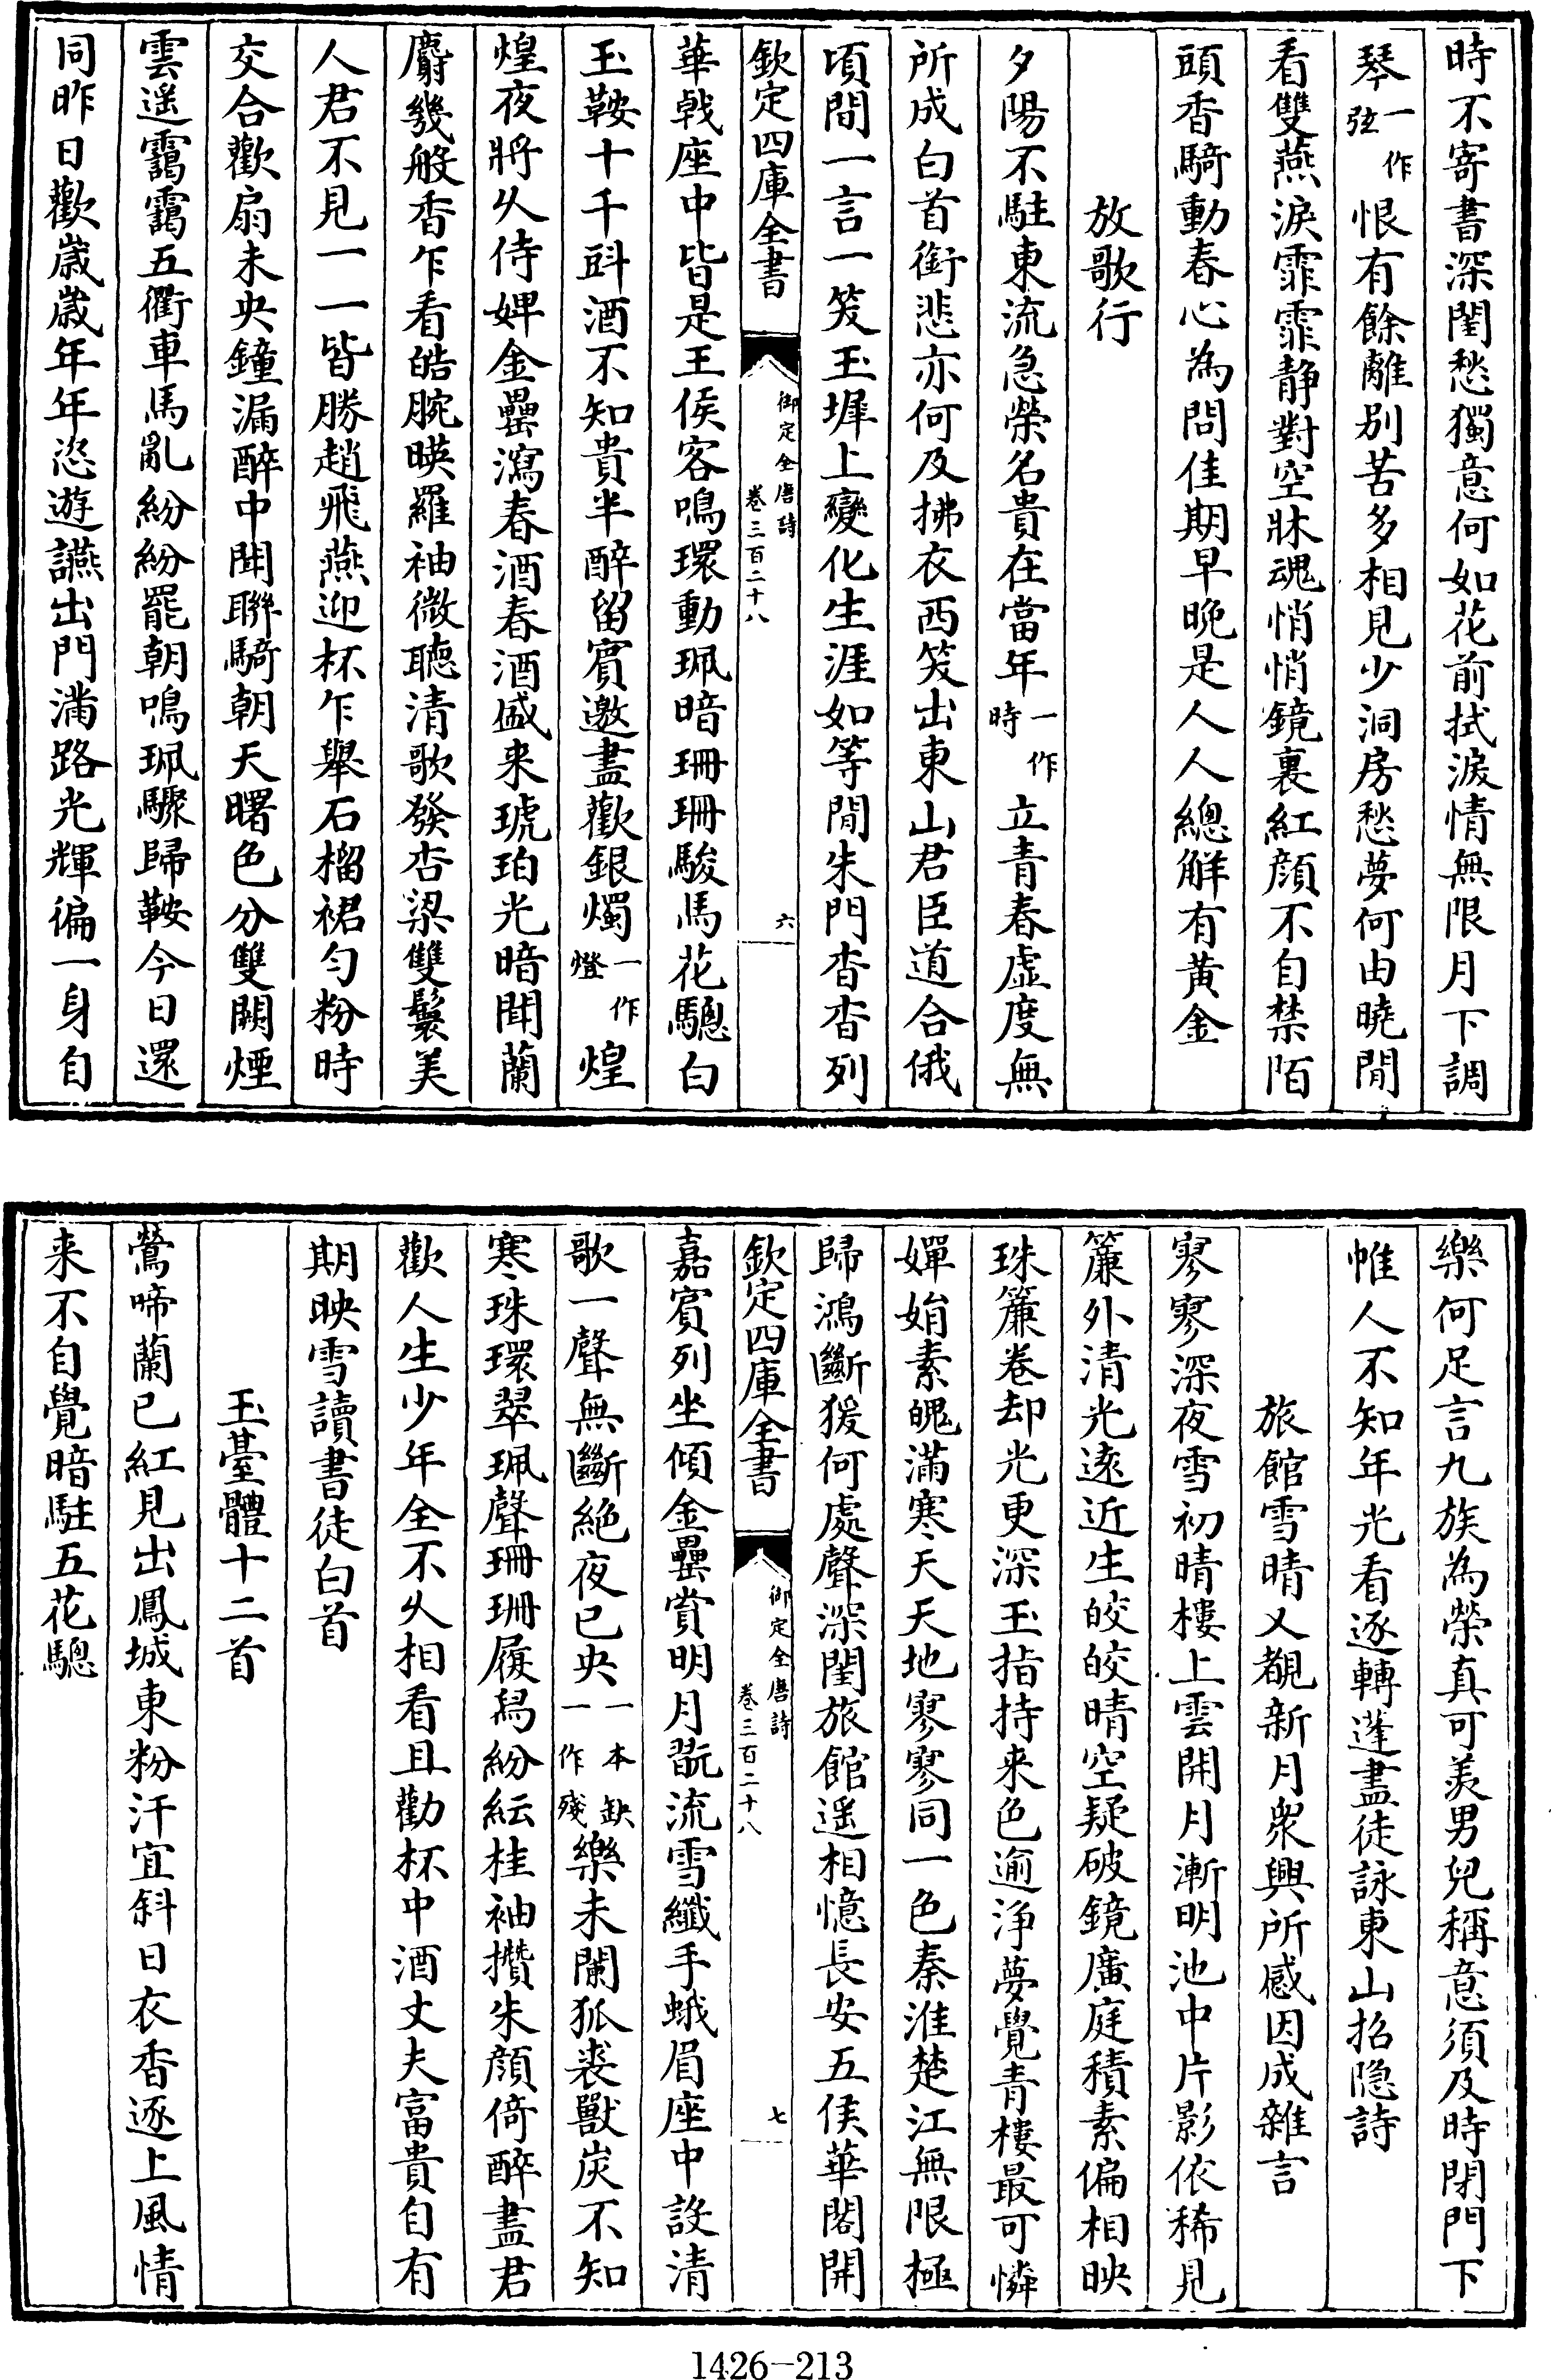 時不寄書深閨愁獨意何如花前拭淚情無限月下調
琴一作弦恨有餘離別苦多相見少洞房愁夢何由曉閒
看雙燕淚霏霏静對空牀魂悄悄鏡裏紅顔不自禁陌
頭香騎動春心為問佳期早晚是人人總解有黄金
放歌行
夕陽不駐東流急榮名貴在當年一作時立青春虚度無
所成白首銜悲亦何及拂衣西笑出東山君臣道合俄
頃間一言一笑玉墀上變化生涯如等閒朱門杳杳列
欽定四庫全書
御定全唐詩
卷三百二十八
六
華戟座中皆是王侯客鳴環動珮暗珊珊駿馬花驄白
玉鞍十千㪷酒不知貴半醉留賓邀盡歡銀燭一作燈煌
煌夜將久侍婢金罍瀉春酒春酒盛来琥珀光暗聞蘭
麝幾般香乍看皓腕暎羅袖微聴清歌發杏梁雙鬟美
人君不見一一皆勝趙飛燕迎杯乍舉石榴裙匀粉時
交合歡扇未央鐘漏醉中聞聯騎朝天曙色分雙闕煙
雲遥靄靄五衢車馬亂紛紛罷朝鳴珮驟歸鞍今日還
同昨日歡歲歲年年恣遊讌出門滿路光輝徧一身自
樂何足言九族為榮真可羨男兒稱意須及時閉門下
帷人不知年光看逐轉蓬盡徒詠東山招隐詩
旅館雪晴又覩新月衆興所感因成雜言
寥寥深夜雪初晴樓上雲開月漸明池中片影依稀見
簾外清光逺近生皎皎晴空疑破鏡廣庭積素偏相映
珠簾卷却光更深玉指持来色逾浄夢覺青樓最可憐
嬋娟素魄滿寒天天地寥寥同一色秦淮楚江無限極
歸鴻斷猨何處聲深閨旅館遥相憶長安五侯華閣開
欽定四庫全書
御定全唐詩
卷三百二十八
七
嘉賓列坐傾金罍賞明月翫流雪纖手蛾眉座中設清
歌一聲無斷絶夜已央一本缺一作殘樂未闌狐裘獸炭不知
寒珠環翠珮聲珊珊履舄紛紜桂袖攢朱顔倚醉盡君
歡人生少年全不久相看且勸杯中酒丈夫富貴自有
期映雪讀書徒白首
玉臺體十二首
鶯啼蘭已紅見出鳳城東粉汗宜斜日衣香逐上風情
来不自覺暗駐五花驄
1426-213